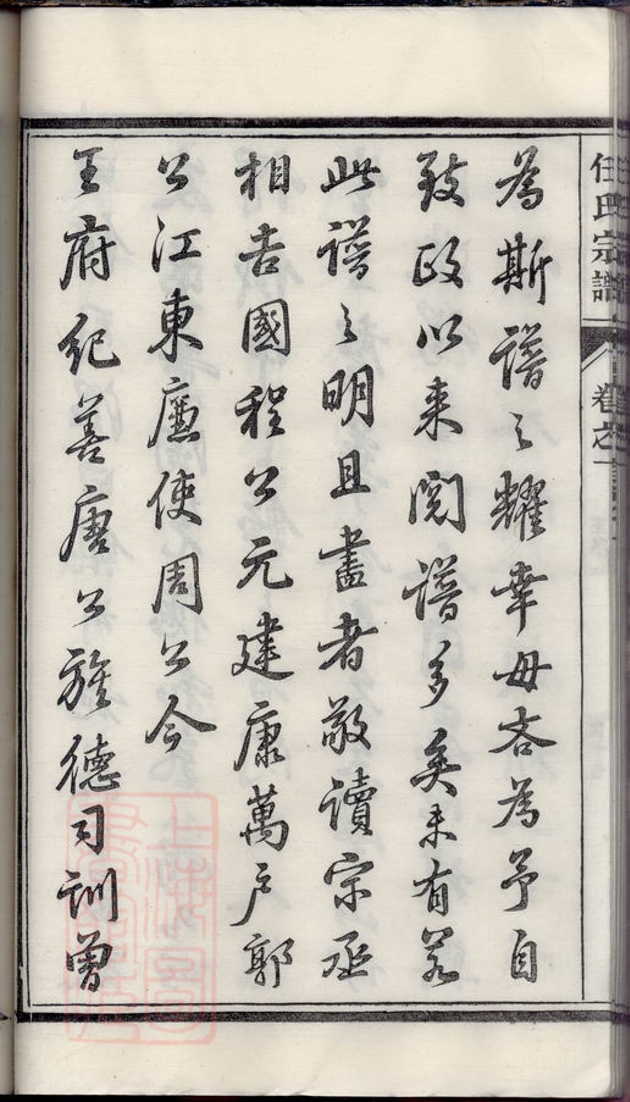 任氏宗譜
卷之一
為斯譜之耀幸毋吝為予自
致政以來閱譜多矣未有若
此譜之明且盡者敬讀宗丞
相吉國程公元建康萬戶郭
公江東廉使周公今
王府紀善唐公族德司訓曾